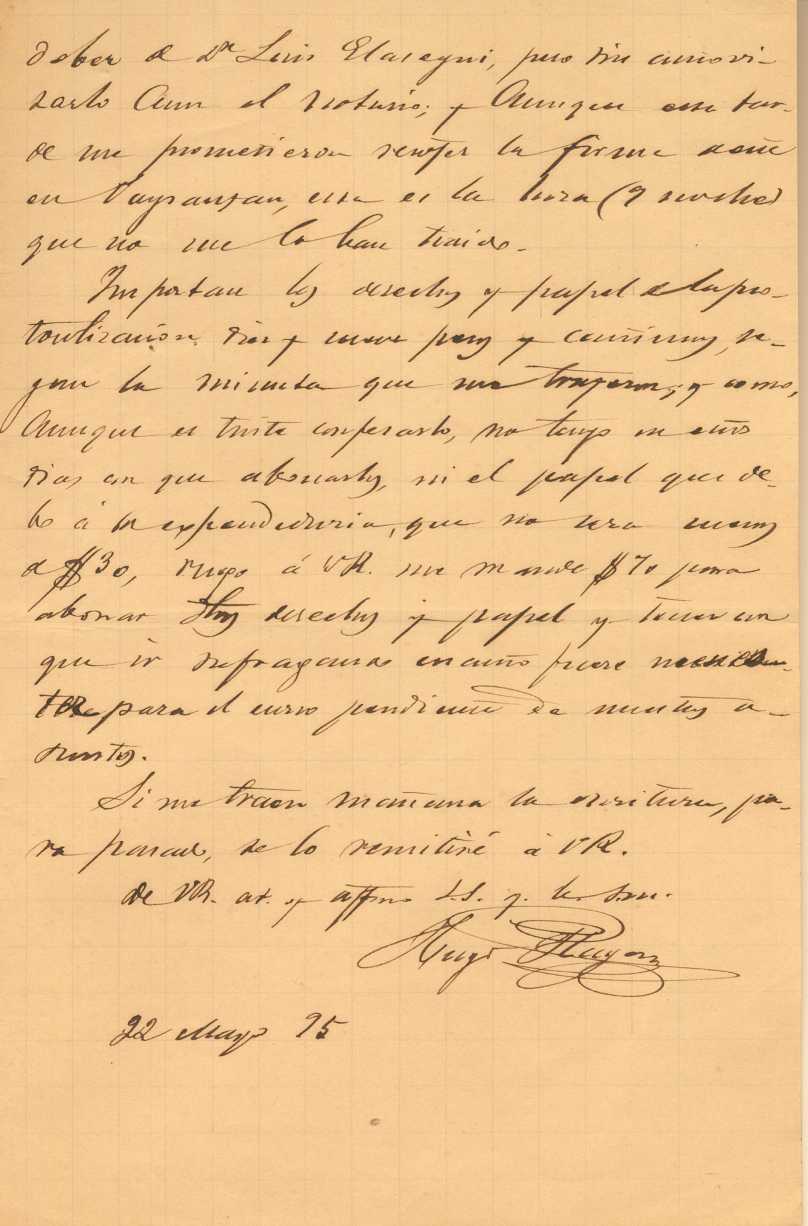 deber de Dn Luis Elaseguí, pero sin
zarlo Aun el Notario; y Aunque esta tar-
de me prometieron la firma
en Pagsanjan, esta es la hora (9 noche)
que no me lo han traido.
Importan los derechos y papel de la pro-
tocolización diez y nueve pesos y centimos, se-
gun la minuta que me trajeron; y como,
Aunque es triste confesarlo, no tengo en estos
dias con que abonarlos, ni el papel que de-
bo á la expendeduria, que no sera menos
de $30, ruego á VR. me mande $70 para
abonar dhos derechos y papel y tener con
que ir sufragando cuanto fuere necesa
para el curso pendiente de nuestros a-
suntos.
Si me traen mañana la escritura, pa-
ra pasado, se lo remitiré á VR.
de VR. at. y affmo S.S. q. b. s. m.
Hugo
22 Mayo 95